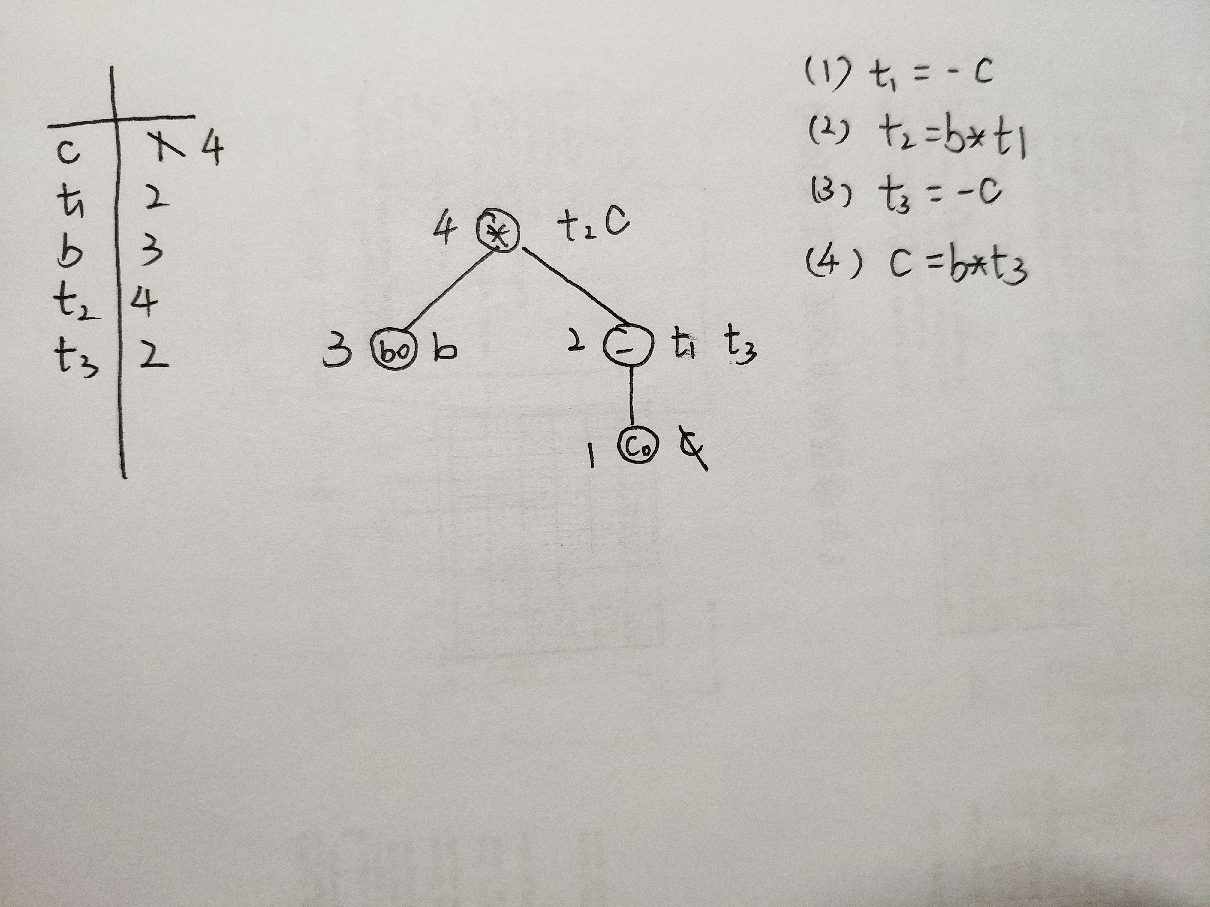 c 1 4
t1 2
b 3
t2 4
t3 2
4 * t2 C
3 b0 b 2 - t1 t3
1 C0 c
(1) t1 = - C
(2) t2 =b*t1
(3) t3 = -C
(4) C =b*t3